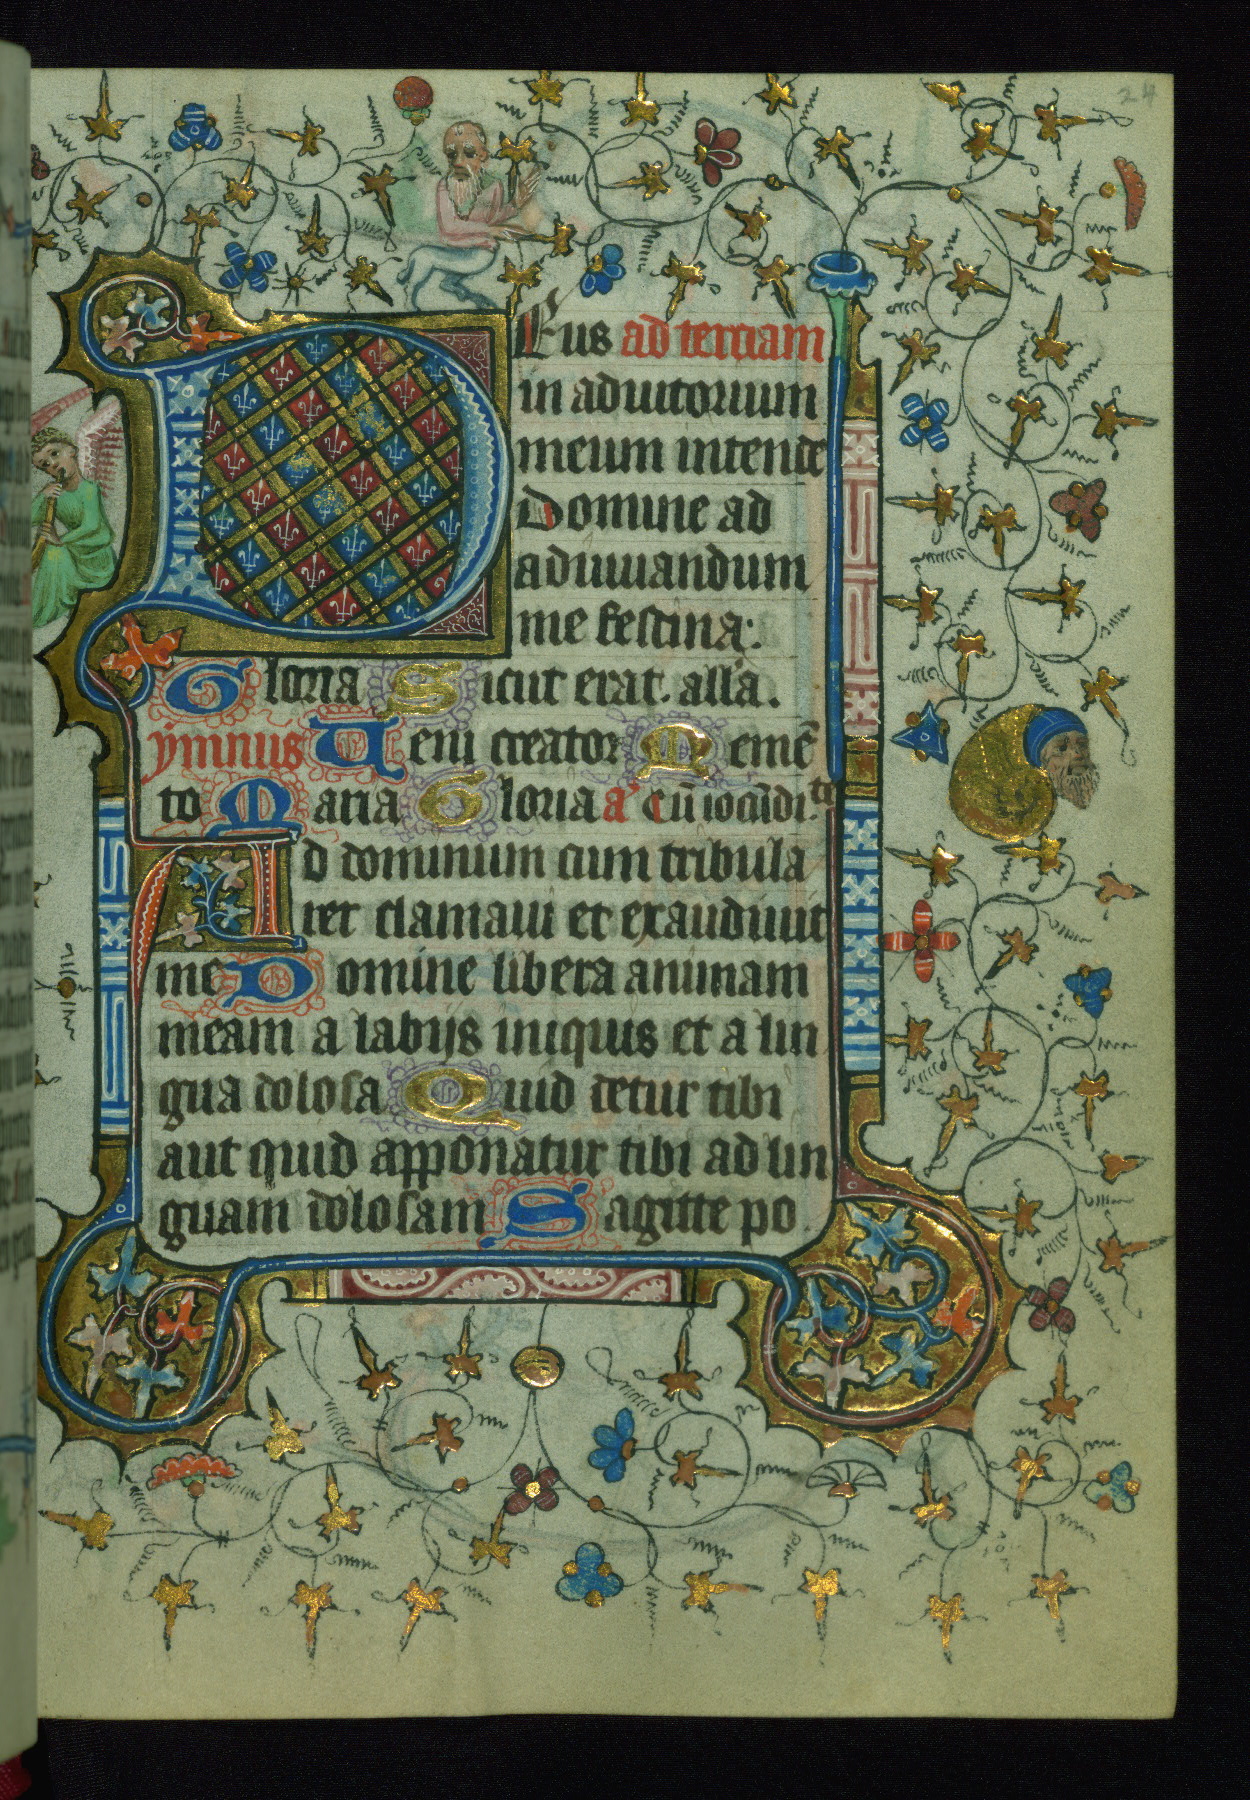 24
DEus ad terciam
in adiutorium
meum intende
Domine ad
adiuuandum
me festina:
Gloria Sicut erat. alla.
ymnus Ueni creator Memē
to Maria Gloria a' cū iocūdi.
Ad dominum cum tribula
ret clamaui et exaudiuit
me Domine libera animam
meam a labijs iniquis et a lin
gua dolosa Quid detur tibi
aut quid apponatur tibi ad lin
guam dolosam Sagitte po